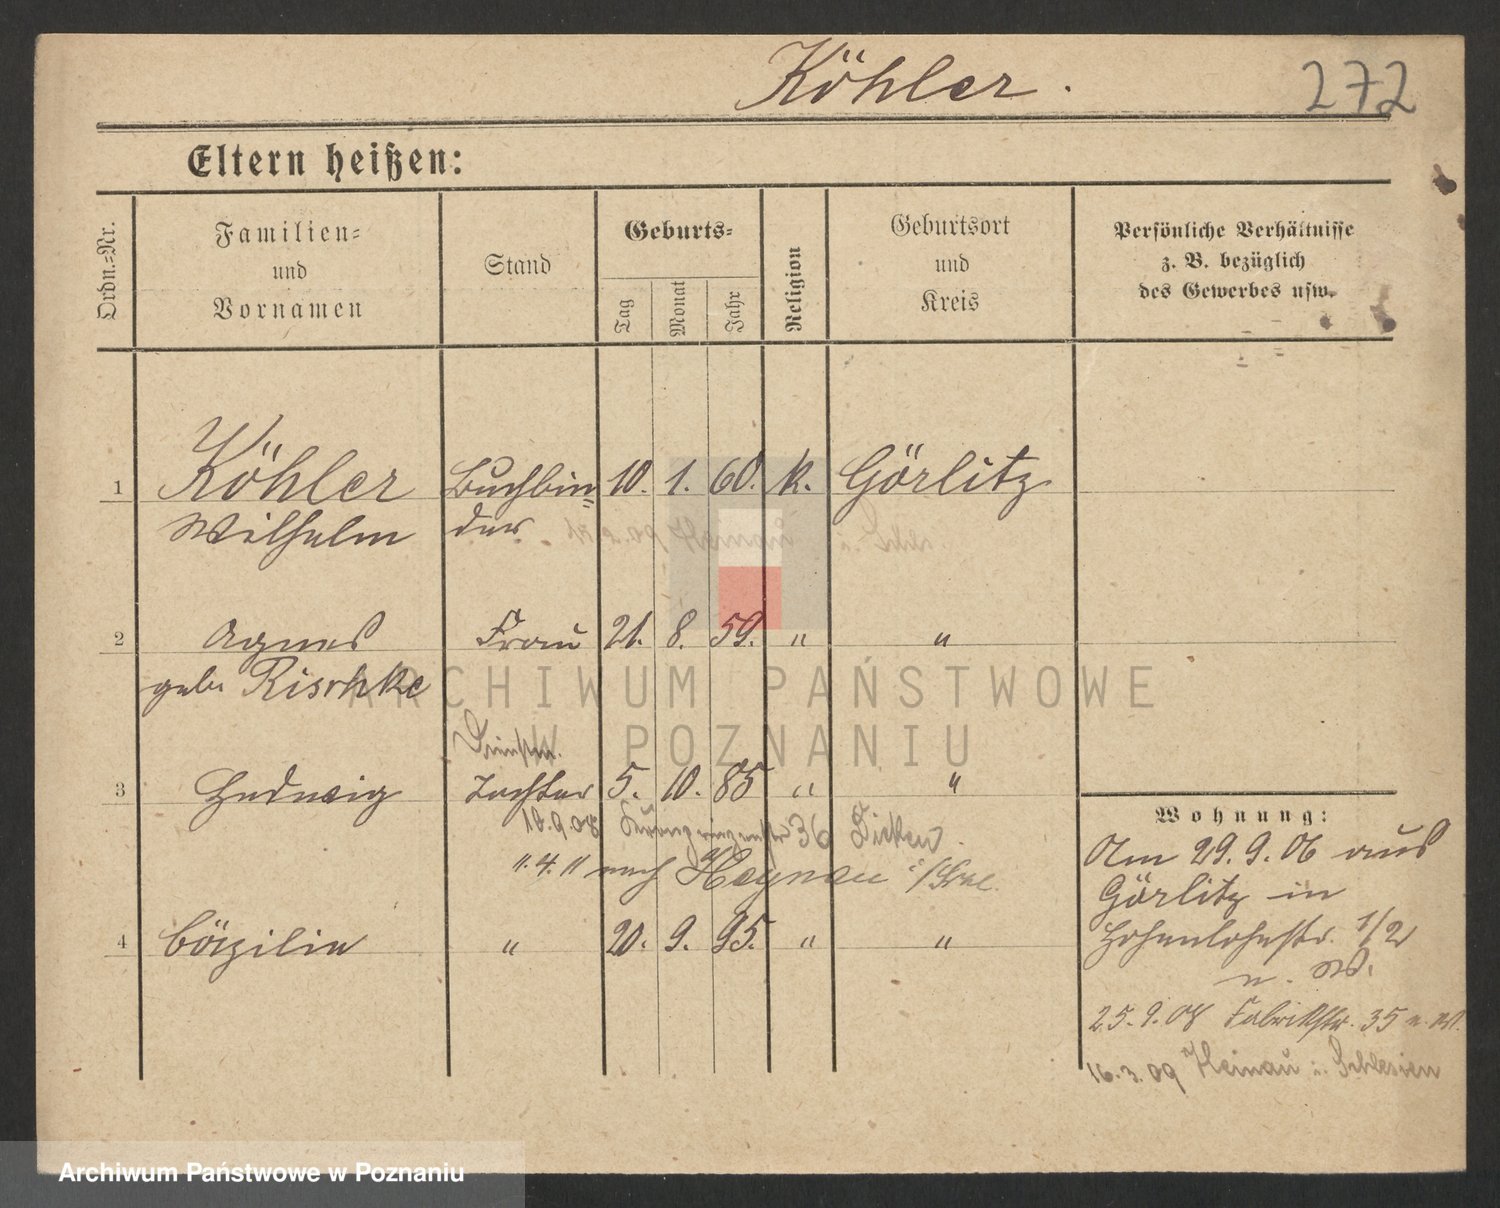 Köhler.
272
Eltern heißen:
Ordn.=Nr.
Familien=
und
Vornamen
Stand
Geburts=
Tag
Monat
Jahr
Religion
Geburtsort
und
Kreis
Persönliche Verhältnisse
z. B. bezüglich
des Gewerbes usw.
1 Köhler Buchbin= 10. 1. 60. k. Görlitz
Wilhelm der
2 Agnes Frau 21. 8. 59. " "
geb. Rischke
3 Hedwig Tochter 5. 10. 85 " "
10.9.08 36
11.4.11 nach Haynau i/Schl.
4 Cäzilie " 20. 9. 95. " "
Wohnung:
Am 29.9.06 aus
Görlitz in
Hohenlohestr. 1/2
u. W.
25.9.08 Fabrikstr. 35 u. W.
16.3.09 Heinau i. Schlesien
ARCHIWUM PAŃSTWOWE
W POZNANIU
Archiwum Państwowe w Poznaniu